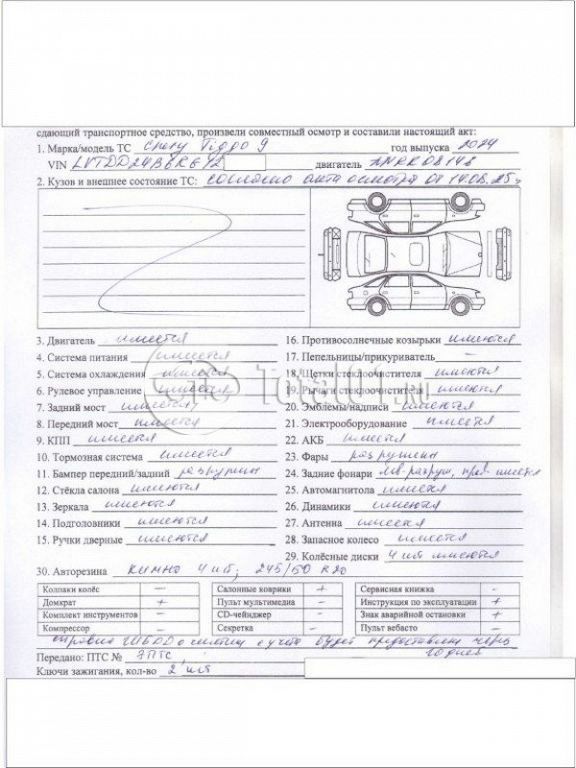 сдающий транспортное средство, произвели совместный осмотр и составили настоящий акт:
1. Марка/модель ТС Chery Tiggo 9 год выпуска 2024
VIN LVTDD24B6RG12 двигатель
2. Кузов и внешнее состояние ТС: согласно акта осмотра от 14.08.25г
3. Двигатель имеется 16. Противосолнечные козырьки имеются
4. Система питания имеется 17. Пепельницы/прикуриватель —
5. Система охлаждения имеется 18. Щетки стеклоочистителя имеются
6. Рулевое управление имеется 19. Рычаги стеклоочистителя имеются
7. Задний мост имеется 20. Эмблемы/надписи имеются
8. Передний мост имеется 21. Электрооборудование имеется
9. КПП имеется 22. АКБ имеется
10. Тормозная система имеется 23. Фары разрушены
11. Бампер передний/задний разрушен 24. Задние фонари лев. разруш, прав. имеется
12. Стёкла салона имеются 25. Автомагнитола имеется
13. Зеркала имеются 26. Динамики имеются
14. Подголовники имеются 27. Антенна имеется
15. Ручки дверные имеются 28. Запасное колесо имеется
29. Колёсные диски 4 шт имеются
30. Авторезина кимно 4 шт, 245/50 R20
Колпаки колёс — Салонные коврики + Сервисная книжка —
Домкрат + Пульт мультимедиа — Инструкция по эксплуатации +
Комплект инструментов — CD-чейнджер — Знак аварийной остановки +
Компрессор — Секретка — Пульт вебасто —
справка ГИБДД о снятии с учета будет предоставлена через
10 дней
Передано: ПТС № ЭПТС
Ключи зажигания, кол-во 2 шт
Total01.ru